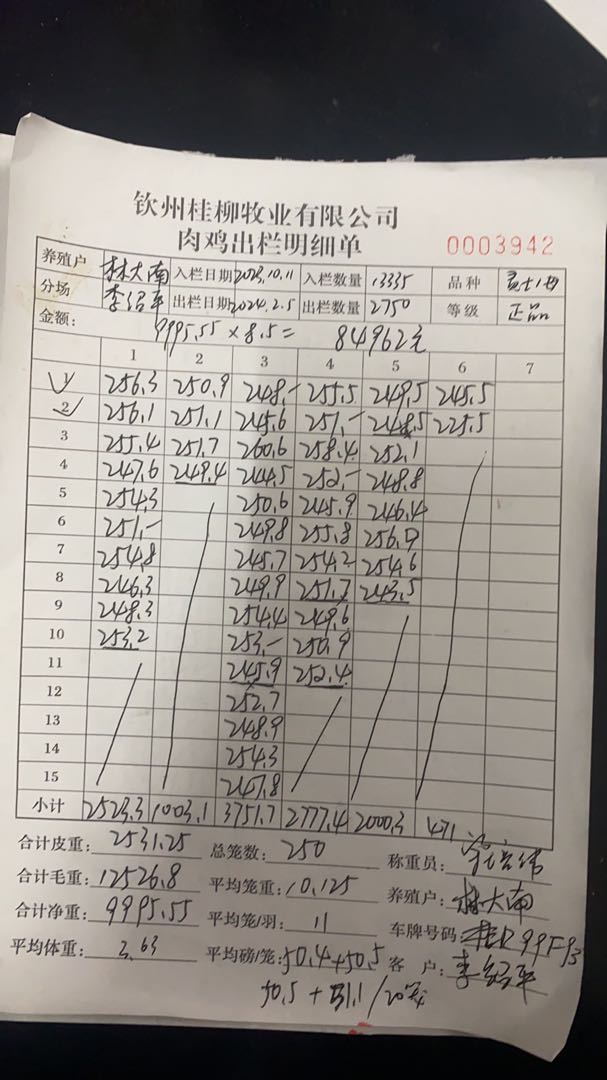 钦州桂柳牧业有限公司
肉鸡出栏明细单
0003942
养殖户 林大南 入栏日期 2023.10.11 入栏数量 13335 品种
分场 李绍平 出栏日期 2024.2.5 出栏数量 2750 等级 正品
金额: 9995.55 × 8.5 = 84962元
1 2 3 4 5 6 7
1 256.3 250.9 248.- 255.5 249.5 245.5
2 256.1 251.1 245.6 251.- 248.5 225.5
3 255.4 251.7 260.6 258.4 252.1
4 247.6 249.4 244.5 252.- 248.8
5 254.3 250.6 245.9 246.4
6 251.- 249.8 255.8 256.9
7 254.8 245.7 254.2 254.6
8 246.3 249.9 251.7 243.5
9 248.3 254.4 249.6
10 253.2 253.- 250.9
11 245.9 252.4
12 252.7
13 248.9
14 254.3
15 247.8
小计 2523.3 1003.1 3751.7 2777.4 2000.3 471
合计皮重: 2531.25 总笼数: 250 称重员:
合计毛重: 12526.8 平均笼重: 10.125 养殖户: 林大南
合计净重: 9995.55 平均笼/羽: 11 车牌号码: 桂R99F93
平均体重: 3.63 平均磅/笼: 50.4+50.5 客户: 李绍平
50.5 + 51.1 /20笼